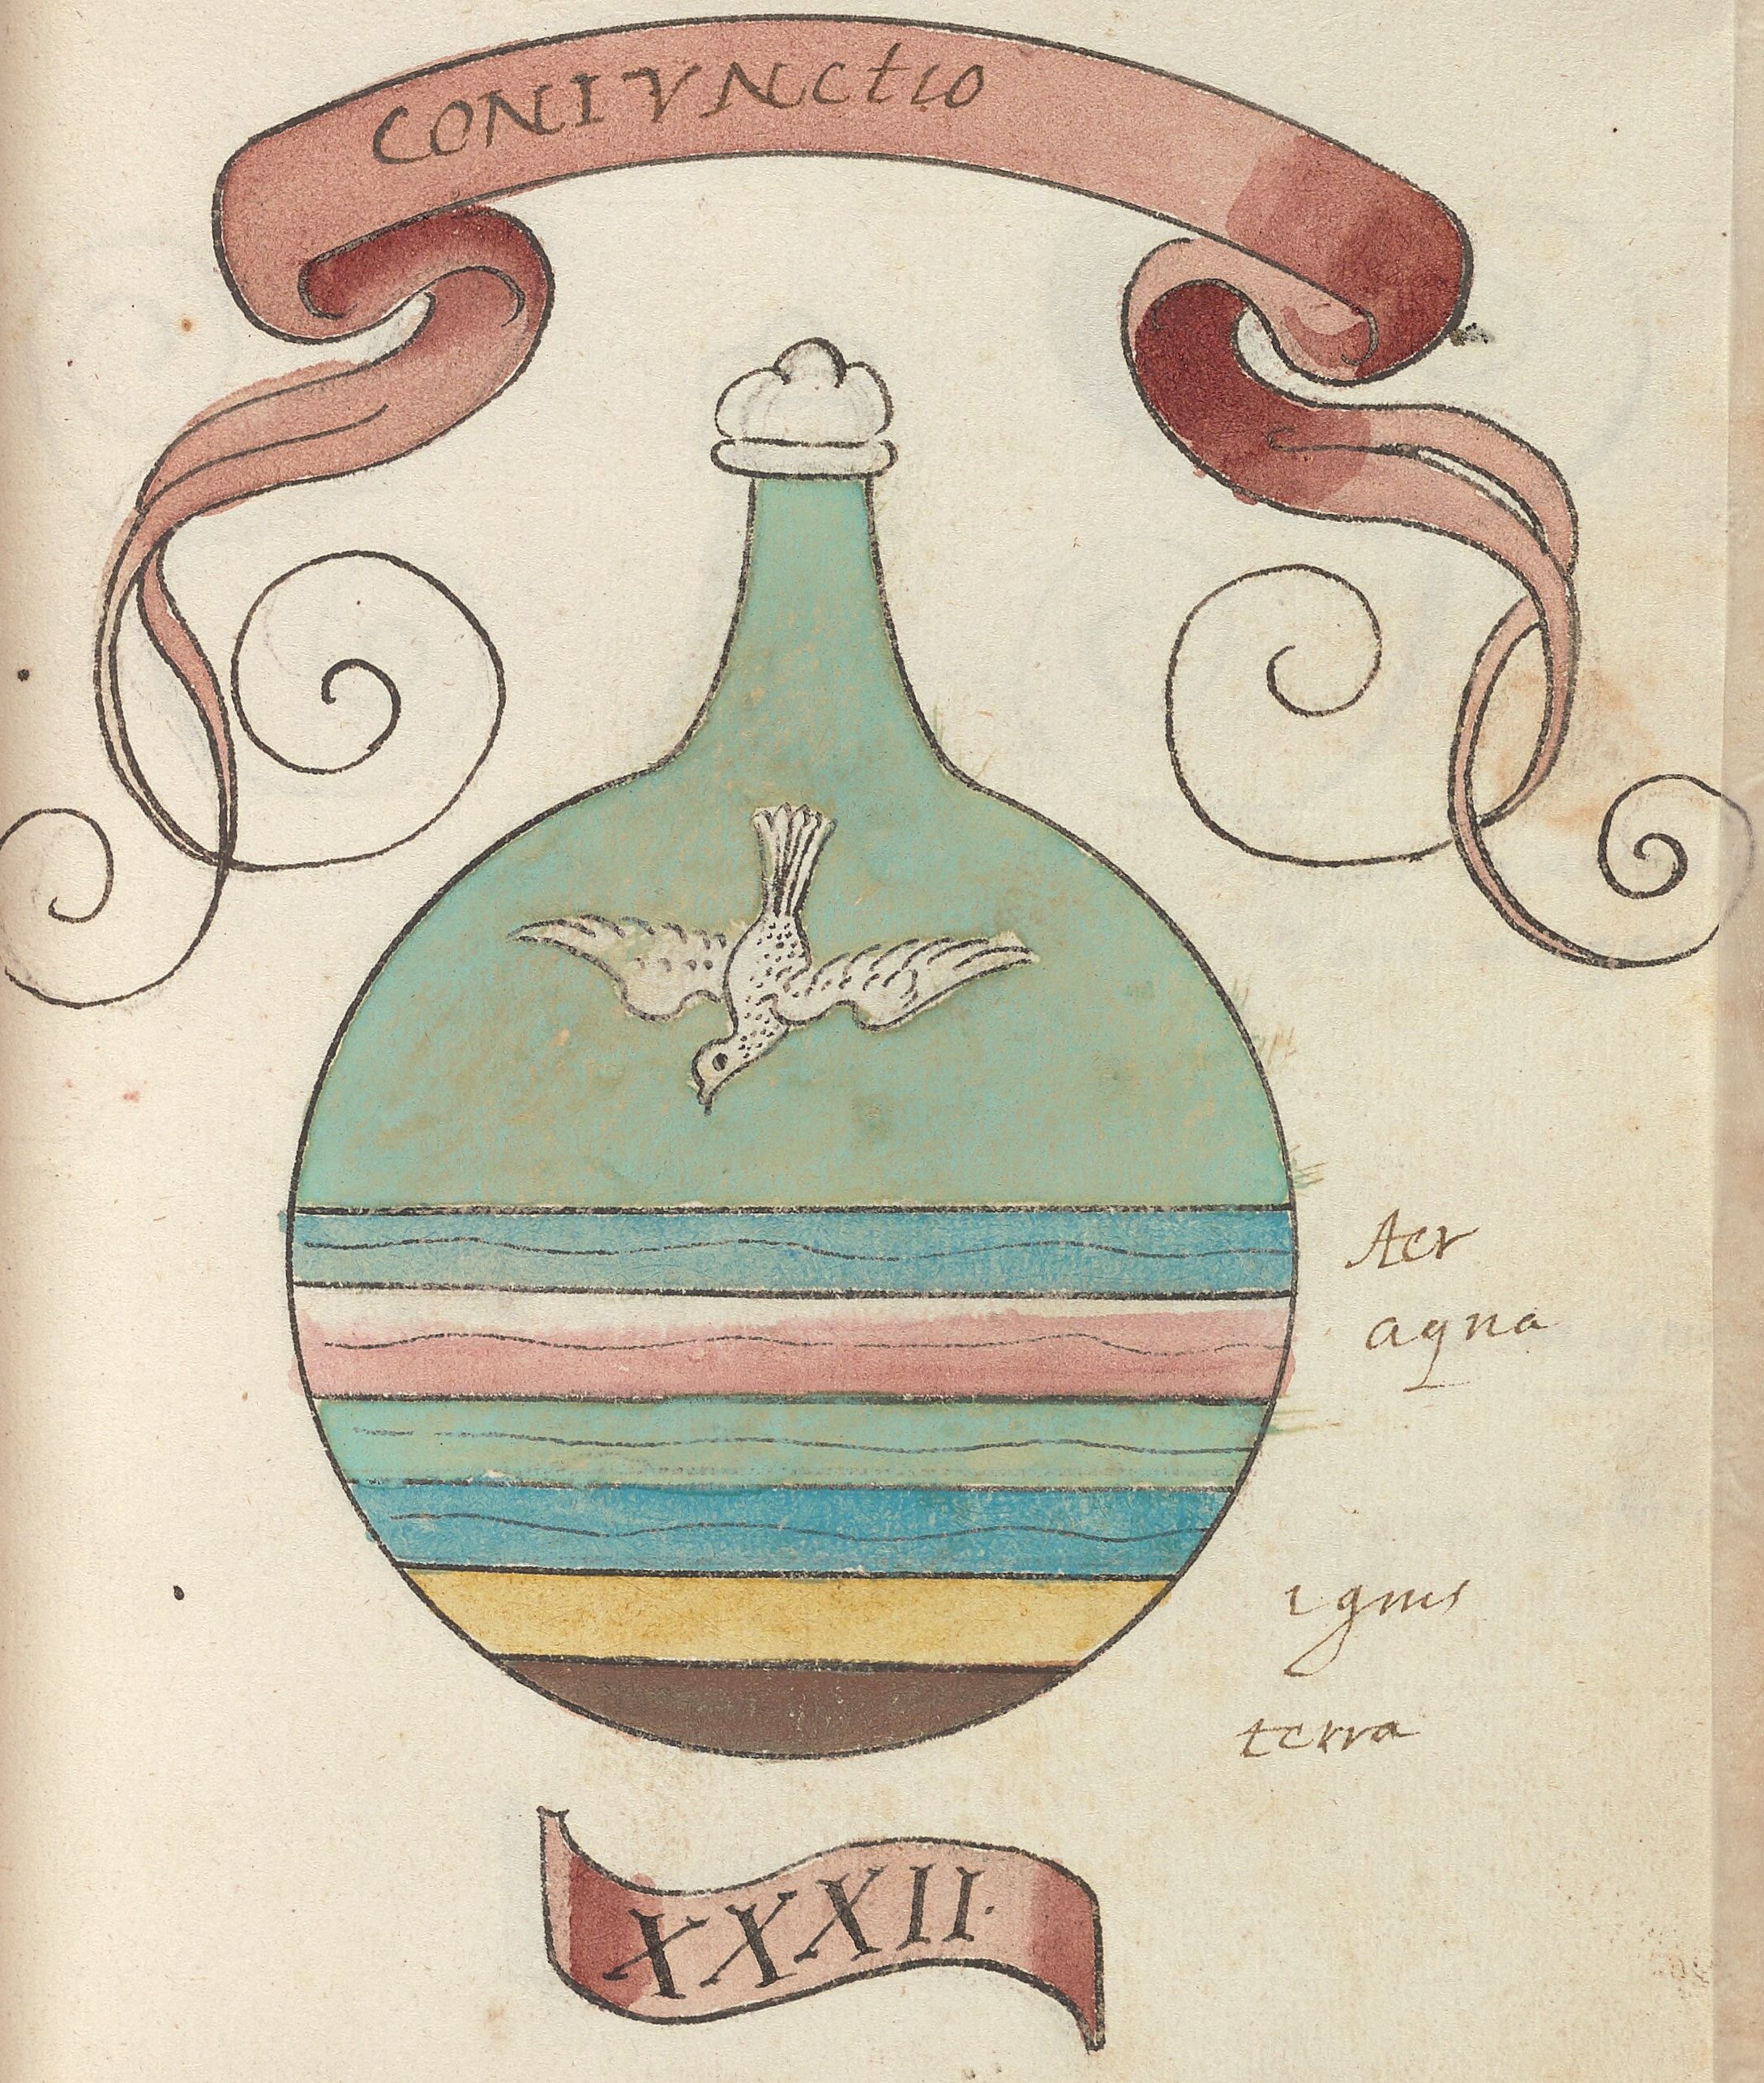 CONIVNctio
Aer
aqua
ignis
terra
XXXII.